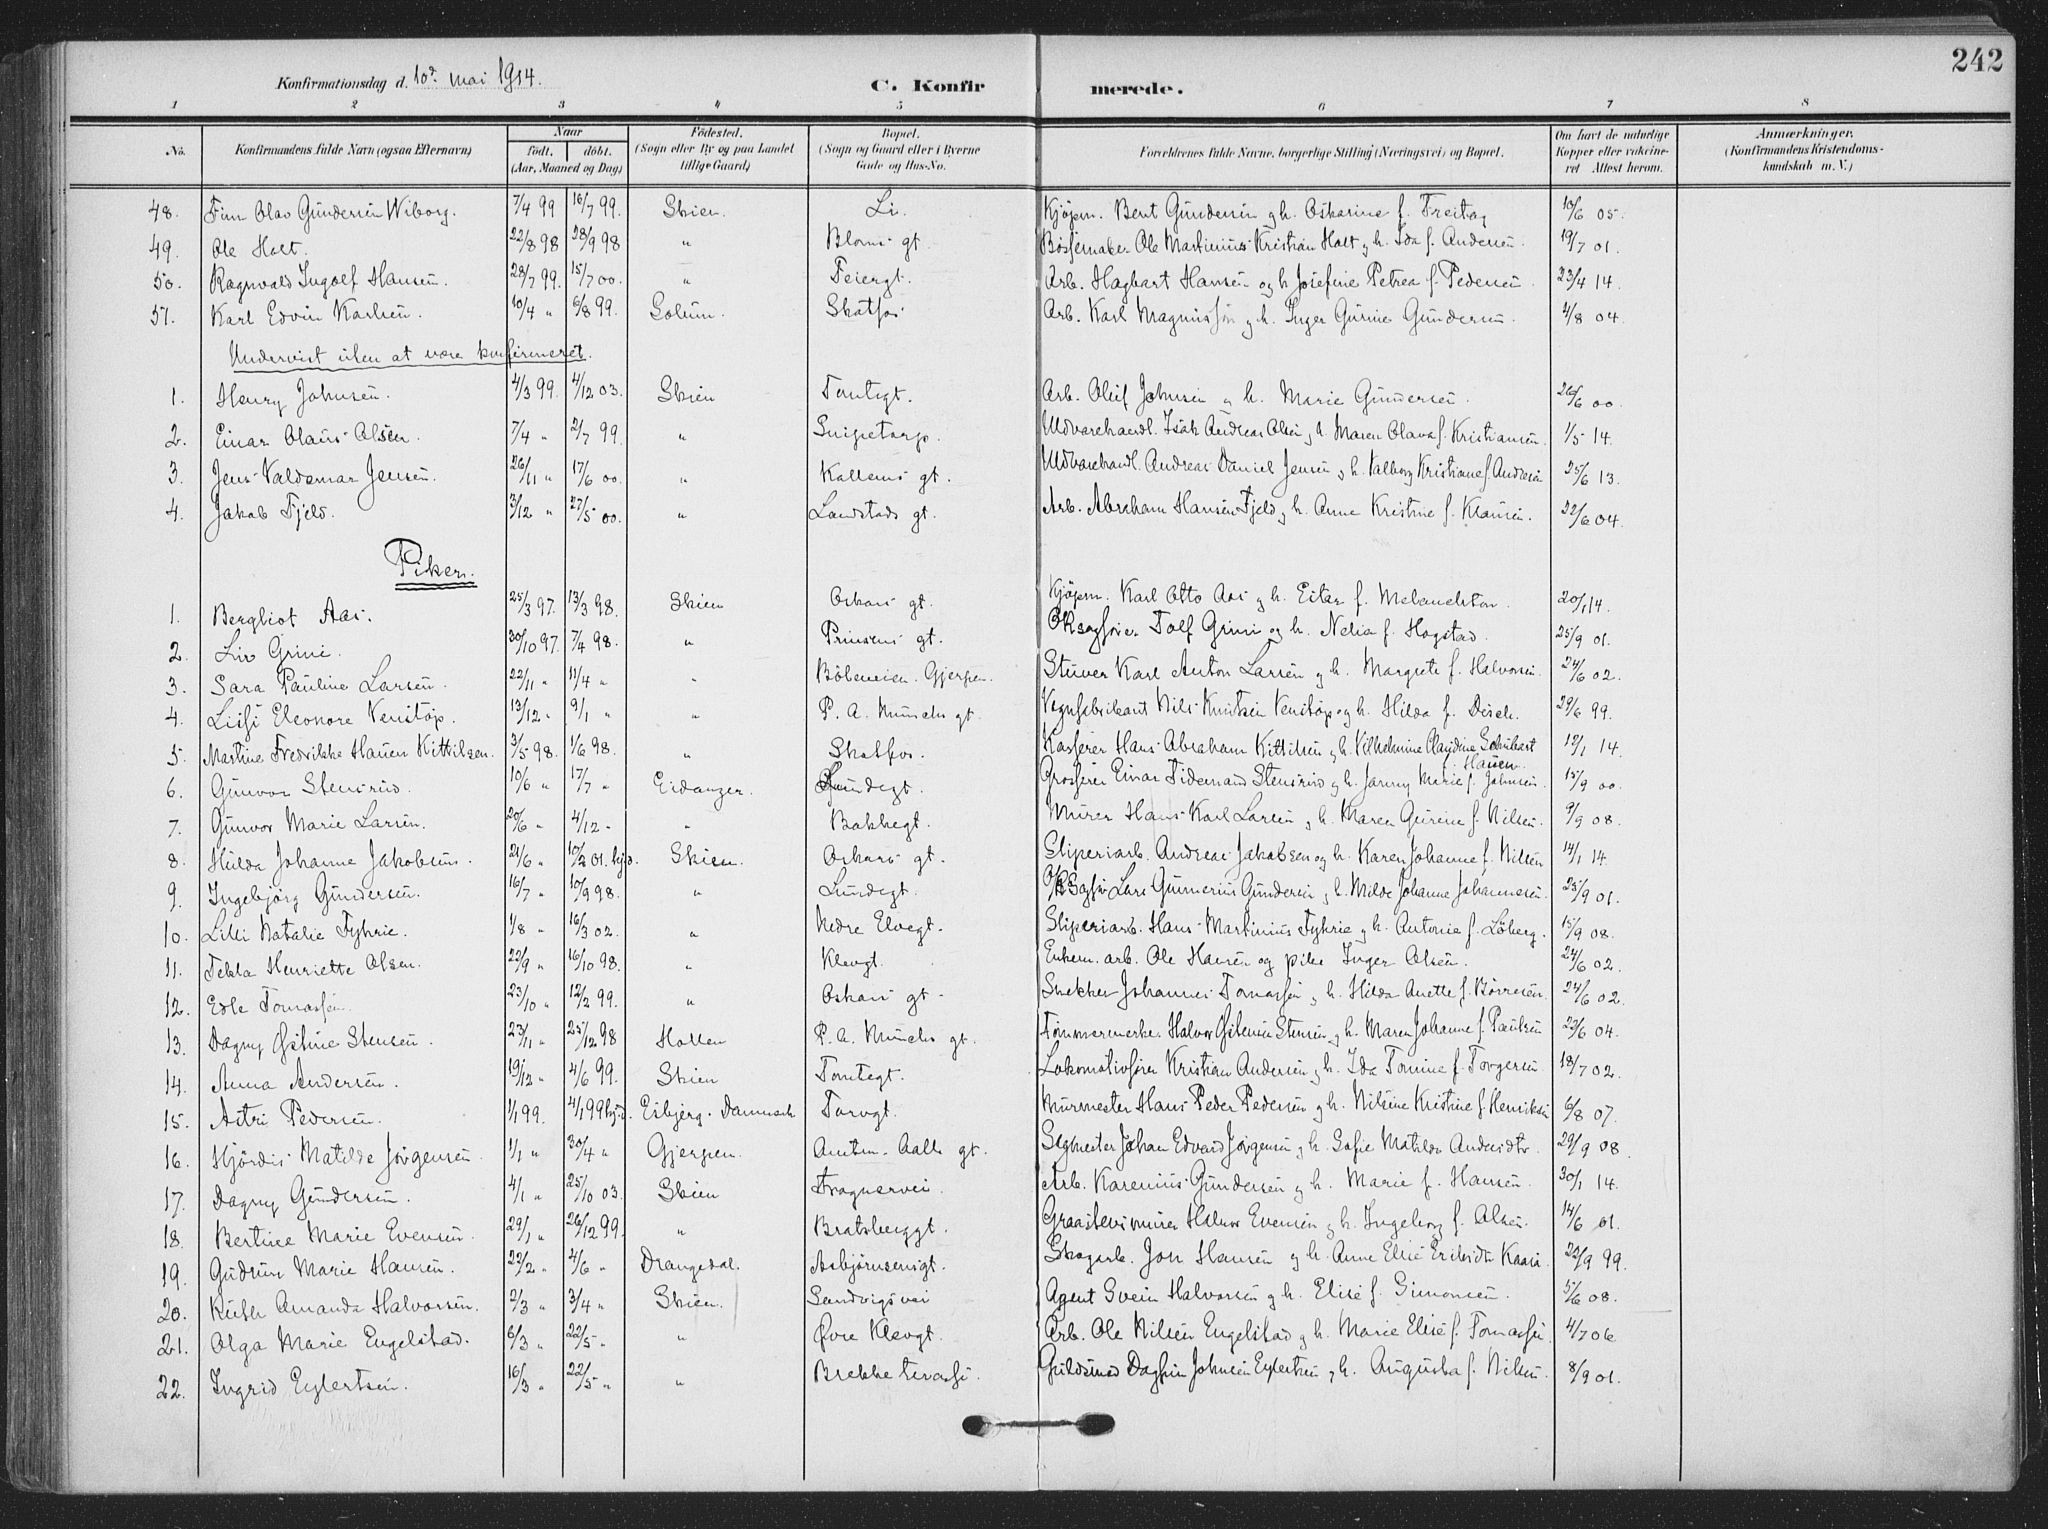 242
Konfirmationsdag d. 10de mai 1914.
C. Konfirmerede.
1 2 3 4 5 6 7 8
No. Konfirmandens fulde Navn (ogsaa Efternavn) Naar födt, döbt. (Aar, Maaned og Dag) Födested. (Sogn eller By og paa Landet tillige Gaard) Bopæl. (Sogn og Gaard eller i Byerne Gade og Hus-No. Forældrenes fulde Navne, borgerlige Stilling (Næringsvei) og Bopæl. Om havt de naturlige Kopper eller vakcineret Attest herom. Anmærkninger. (Konfirmandens Kristendomskundskab m. V.)
48. Finn Olav Gundersen Wiborg. 7/4 99 16/7 99. Skien. Li. Kjøpm. Bent Gundersen og h. Oskarine f. Freitag 10/6 05.
49. Ole Holt. 22/8 98 28/9 98 " Bloms gt. Bøssemaker Ole Martinius Kristian Holt og h. Ida f. Andersen. 19/7 01.
50. Ragnvald Ingolf Hansen. 28/7 99. 15/7 00. " Feiergt. Arb. Hagbart Hansen og h. Josefine Petrea f. Pedersen 23/4 14.
51. Karl Edvin Karlsen. 10/4 " 6/8 99. Solum. Skotfos Arb. Karl Magnussøn og h. Inger Gurine Gundersen. 4/8 04.
Undervist uten at være konfirmeret.
1. Henry Johnsen. 4/3 99. 4/12 03. Skien Tomtegt. Arb. Oluf Johnsen og h. Marie Gundersen. 26/6 00.
2. Einar Olaus Olsen. 7/4 " 2/7 99. " Snipetorp. Uldvarehandl. Isak Andreas Olsen og h. Maren Olava f. Kristiansen. 1/5 14.
3. Jens Valdemar Jensen. 26/11 " 17/6 00. " Kallems gt. Uldvarehandl. Andreas Daniel Jensen og h. Valborg Kristiane f. Andersen 25/6 13.
4. Jakob Fjeld. 3/12 " 27/5 00. " Landstads gt. Arb. Abraham Hansen Fjeld og h. Anne Kristine f. Klausen. 22/6 04.
Piker.
1. Bergliot Aas. 25/3 97. 13/3 98. Skien Oskars gt. Kjøpm. Karl Otto Aas og h. Ester f. 20/1 14.
2. Liv Grini. 30/10 97. 7/4 98. " Prinsens gt. ORsagfører Tolf Grini og h. Nelia f. Hogstad. 25/9 01.
3. Sara Pauline Larsen. 22/11 " 11/4 " " Böleveien. Gjerpen. Stuver Karl Anton Larsen og h. Margrete f. Halvorsen 24/6 02.
4. Lissi Eleonore Venstöp. 13/12 " 9/1 " " P. A. Munchs gt. Vognfabrikant Nils Knutsen Venstöp og h. Hilda f. Disch. 29/6 99.
5. Martine Fredrikke Hansen Kittilsen. 3/5 98. 1/6 98. " Skotfos. Kasserer Hans Abraham Kittilsen og h. Vilhelmine Claudine Schubart f. Hansen. 12/1 14.
6. Gunvor Stensrud. 10/6 " 17/7 " Eidanger. Lundegt. Grosserer Einar Tidemand Stensrud og h. Janny Marie f. Johnsen. 15/9 00.
7. Gunvor Marie Larsen. 20/6 " 4/12 " " Bakkegt. Murer Hans Karl Larsen og h. Maren Gurine f. Nilsen. 9/9 08.
8. Hulda Johanne Jakobsen. 21/6 " 10/2 01. hjd. Skien. Oskars gt. Sliperiarb. Andreas Jakobsen og h. Karen Johanne f. Nilsen 14/1 14.
9. Ingebjörg Gundersen. 16/7 " 10/9 98. " Lundegt. Lars Gunnerius Gundersen og h. Milda Johanne Johannesen. 25/9 01.
10. Lilli Natalie Fyhrie. 1/8 " 16/3 02. " Nedre Elvegt. Sliperiarb. Hans Martinius Fyhrie og h. Antonie f. Löberg. 15/9 08.
11. Tekla Henriette Olsen. 22/9 " 16/10 98. " Klevgt. Enkem. arb. Ole Hansen og pike Inger Olsen. 24/6 02.
12. Edle Tomassen. 23/10 " 12/2 99. " Oskars gt. Snekker Johannes Tomassen og h. Hilda Anette f. Börresen. 24/6 02.
13. Dagny Østine Stensen. 23/11 " 25/12 98 Hollen P. A. Munchs gt. Tömmermerker Halvor Østensen Stensen og h. Maren Johanne f. Paulsen 22/6 04.
14. Anna Andersen. 19/12 " 4/6 99. Skien Tomtegt. Lokomotivfører Kristian Andersen og h. Ida Tomine f. Torgersen 18/7 02.
15. Astri Pedersen. 1/1 99. 4/1 99 hjd. Esbjerg. Danmark Torvgt. Murmester Hans Peder Pedersen og h. Nilsine Kristine f. Henriksen 6/8 07.
16. Hjördis Matilde Jörgensen. 1/1 " 30/4 " Gjerpen. Amtm. Aalls gt. Sagmester Johan Edvard Jörgensen og h. Sofie Matilda Andersdtr. 29/9 08.
17. Dagny Gundersen. 4/1 " 25/10 03. Skien Frognervei. Arb. Karenius Gundersen og h. Marie f. Hansen. 30/1 14.
18. Bertine Marie Evensen. 29/1 " 26/12 99. " Bratsberggt. Graastensmurer Halvor Evensen og h. Ingeborg f. Olsen. 14/6 01.
19. Gudrun Marie Hansen. 22/2 " 4/6 " Drangedal. Asbjørnsensgt. Skogarb. Jon Hansen og h. Anne Elise Eriksdtr. Kaasa 22/9 99.
20. Ruth Amanda Halvorsen. 2/3 " 3/4 " Skien. Landvigsvei Agent Svein Halvorsen og h. Elise f. Simonsen. 5/6 08.
21. Olga Marie Engelstad. 6/3 " 22/5 " " Øvre Klevgt. Arb. Ole Nilsen Engelstad og h. Marie Elise f. Tomassen. 4/7 06
22. Ingrid Eylertsen. 16/3 " 22/5 " " Brekke terasse. Guldsmed Dagfin Johnsen Eylertsen og h. Augusta f. Nilsen. 8/9 01.